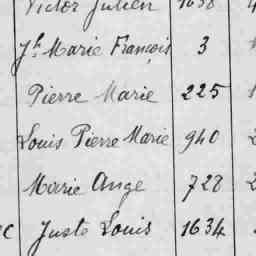 Victor Julien 1638
Jh Marie François 3
Pierre Marie 225
Louis Pierre Marie 940
Marie Ange 728
Juste Louis 1634